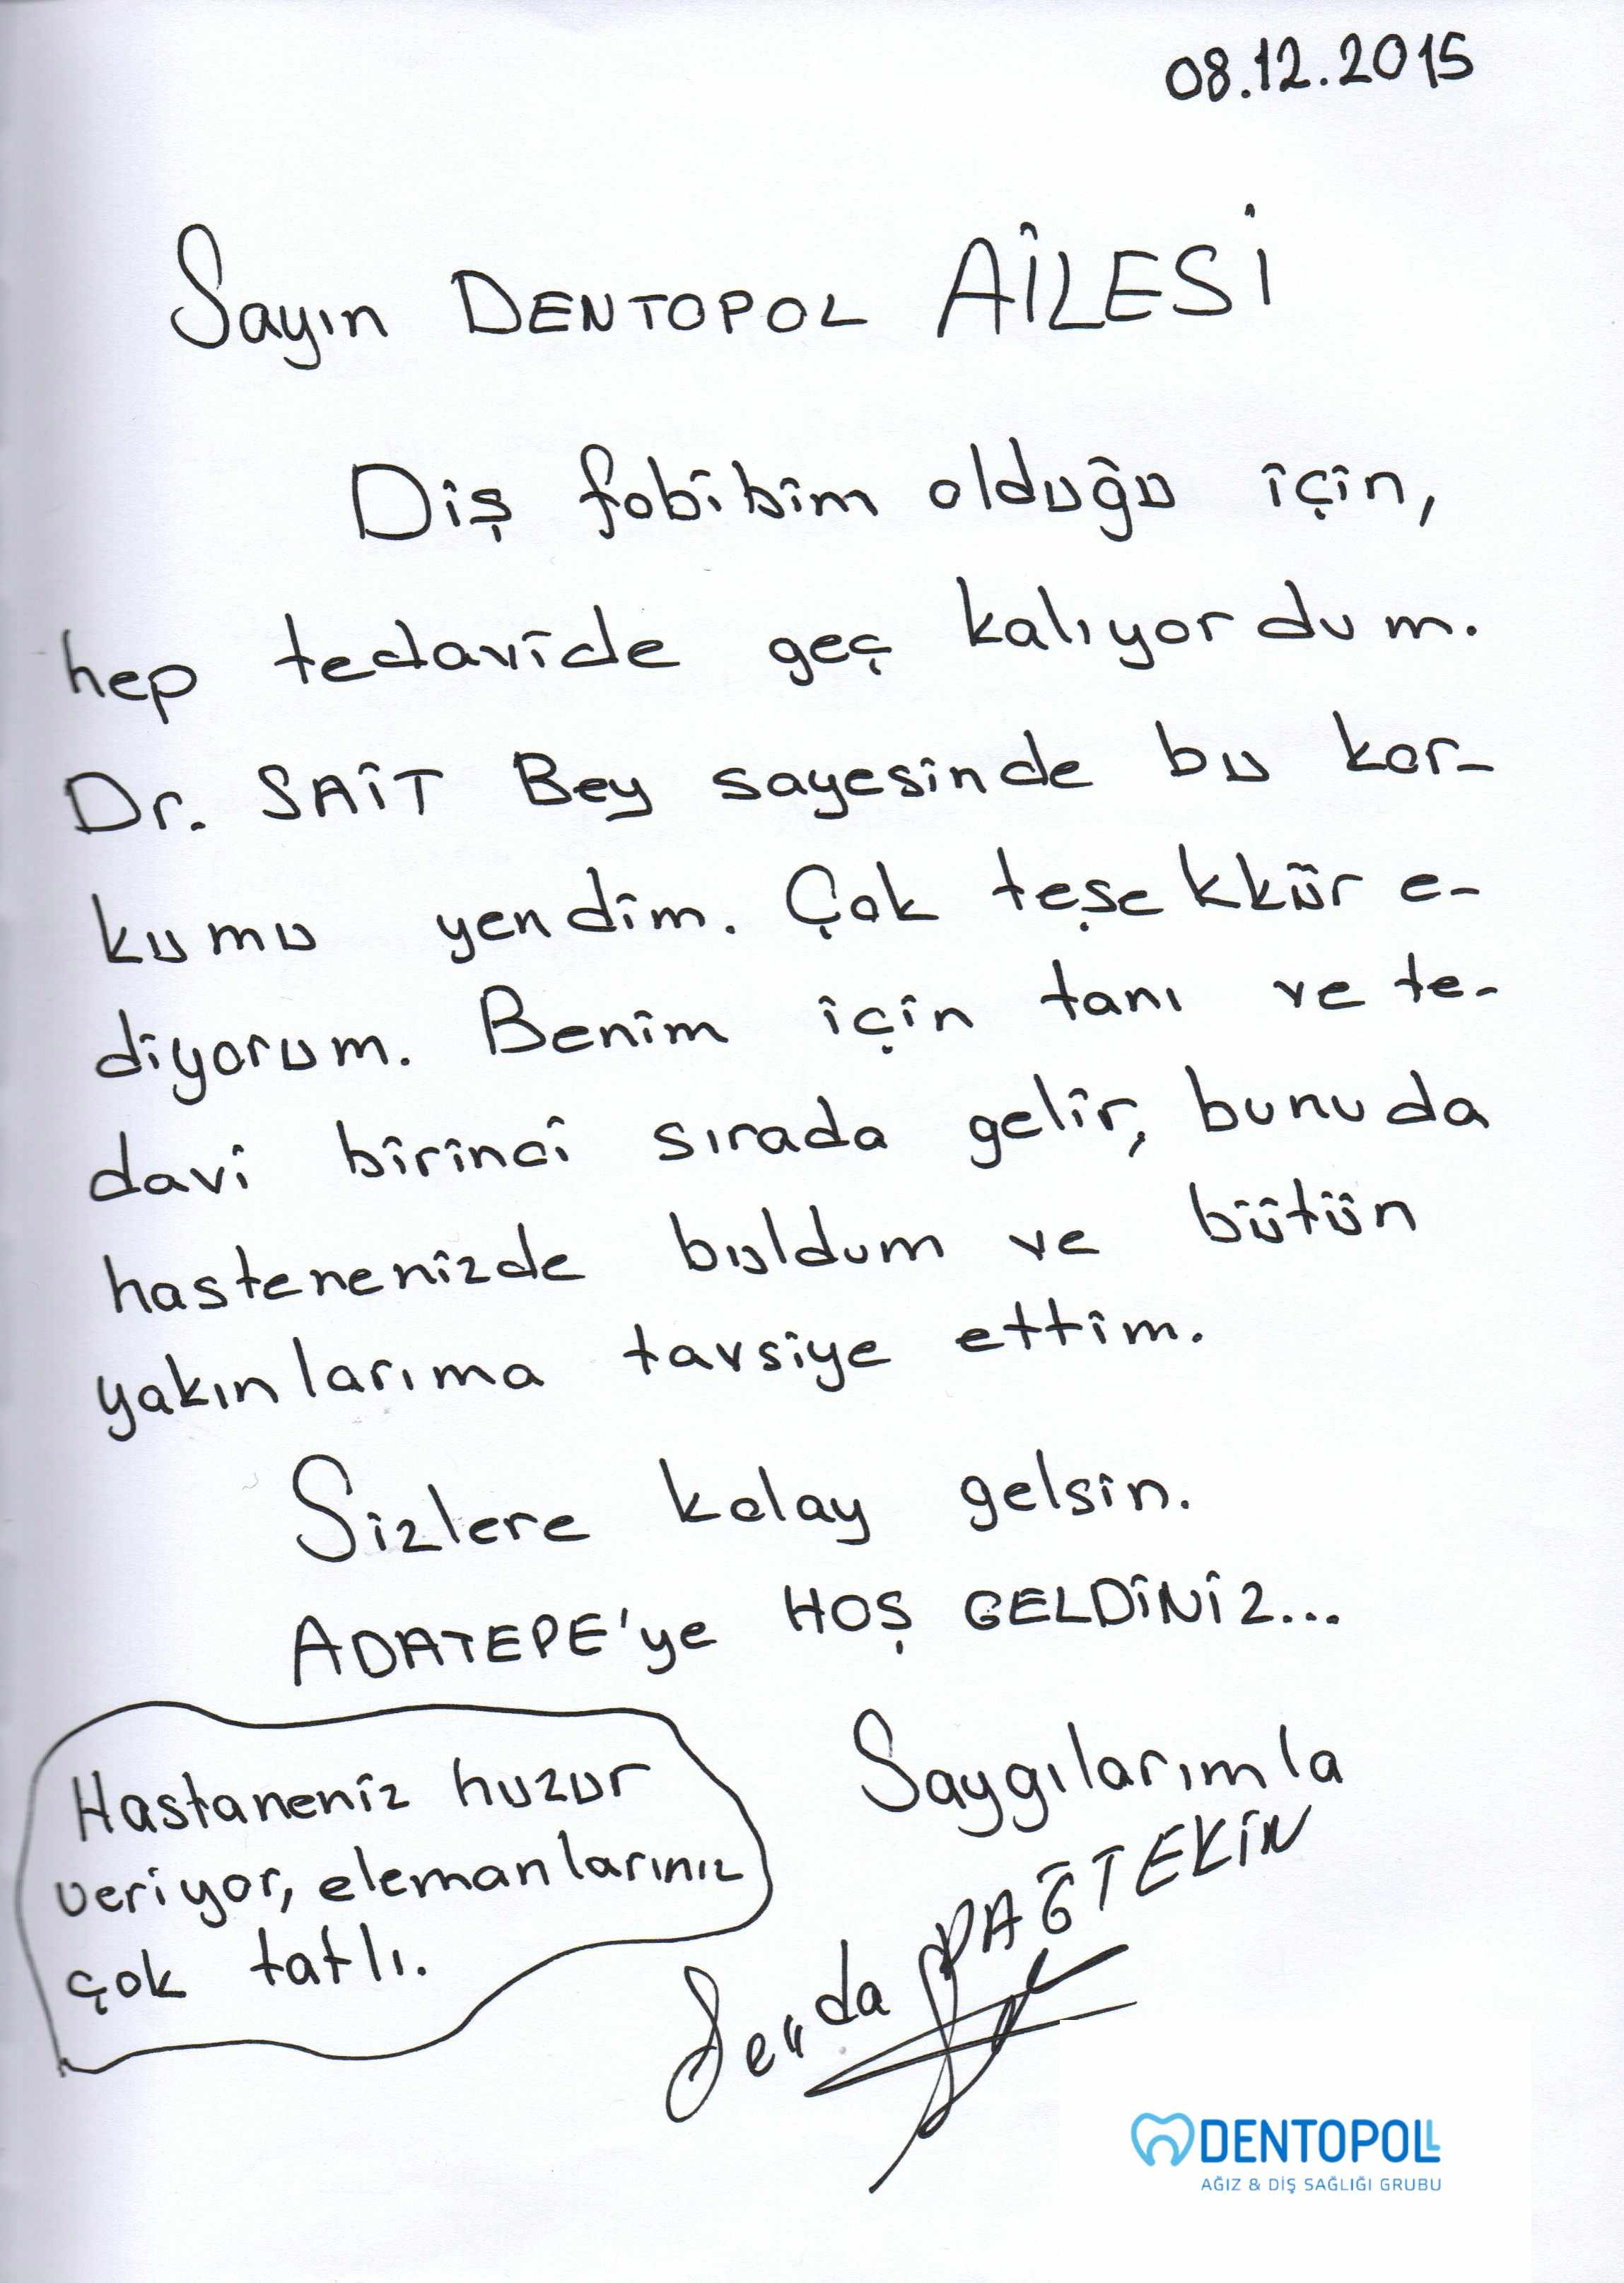 08.12.2015
Sayın DENTOPOL AİLESİ
Diş fobibim olduğu için,
hep tedavide geç kalıyordum.
Dr. SAİT Bey sayesinde bu kor-
kumu yendim. Çok teşekkür e-
diyorum. Benim için tanı ve te-
davi birinci sırada gelir, bunuda
hastenenizde buldum ve bütün
yakınlarıma tavsiye ettim.
Sizlere kolay gelsin.
ADATEPE'ye HOŞ GELDİNİZ...
Saygılarımla
DAĞTEKİN
Hastaneniz huzur
veriyor, elemanlarınız
çok tatlı.
DENTOPOLL
AĞIZ & DİŞ SAĞLIĞI GRUBU